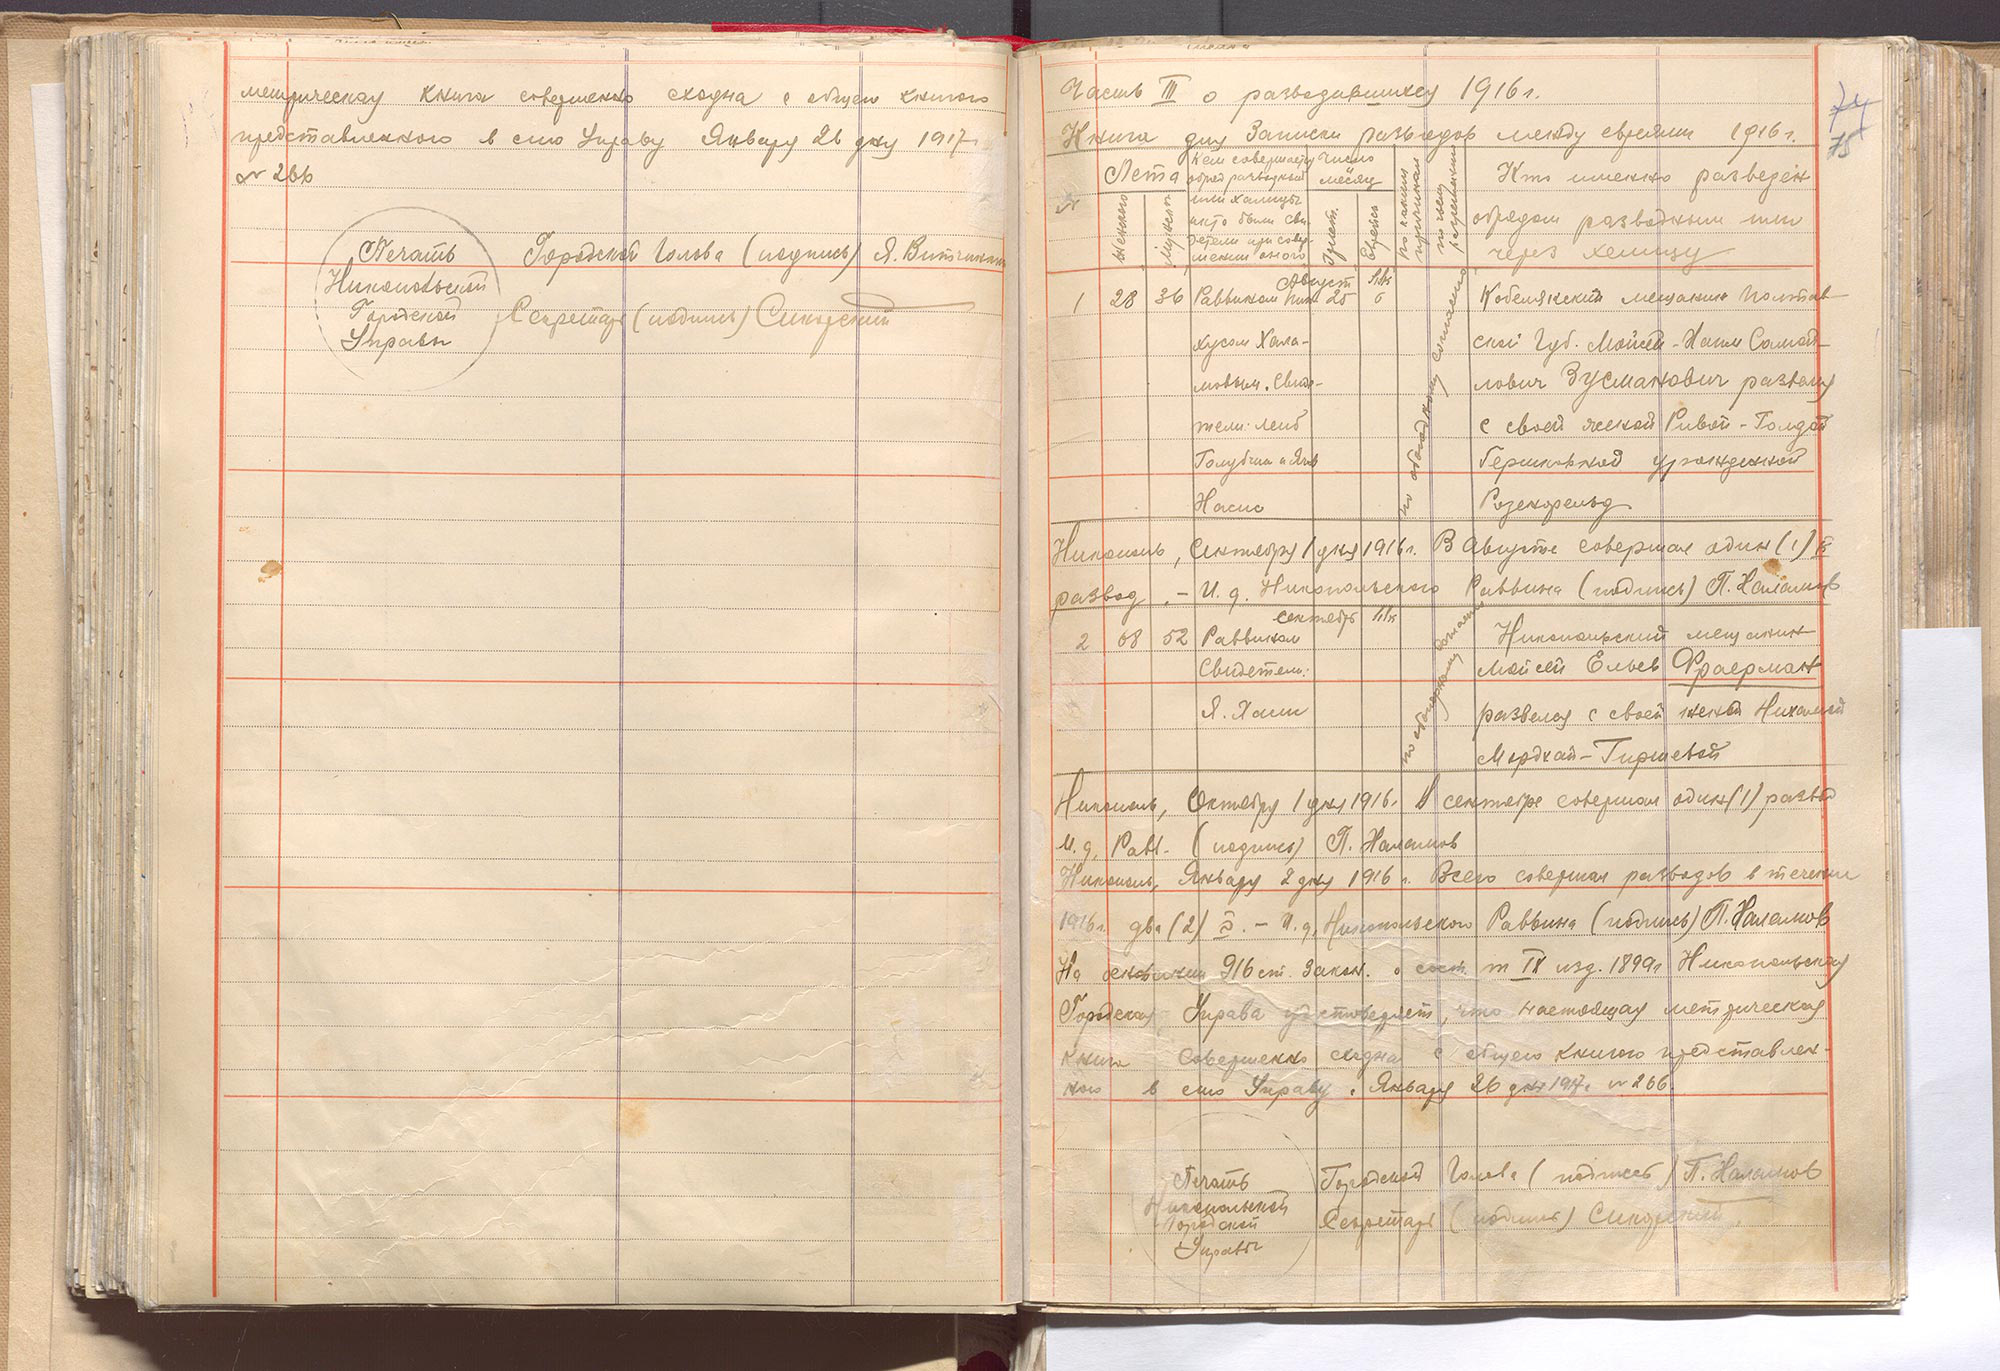 метрическая книга совершенно сходна с общею книгою
представленною в сию Управу Января 26 дня 1917 г.
№ 266
Печать
Никопольской
Городской
Управы
Городской Голова (подпись) Я.
Секретарь (подпись) Сикорский
Часть III о разводившихся 1916 г.
74
75
Книга для Записки разводов между евреями 1916 г.
№
Лета
женского
мужского
Кем совершается
обряд разводный
или халицы
и кто были сви-
детели при совер-
шении оного
Число
месяц
Христ.
Еврейск
по каким
причинам
по чему
разрешению
Кто именно разведен
обрядом разводным или
через халицу
Август
1 28 36 Раввином 25 6
Халa-
мовым. Свиде-
тели: Лейб
Голубчик и Янк
Насис
по обоюдному согласию
Кобелякский мещанин Полтав-
ской Губ. Мойсей-Хаим Самой-
лович Зусманович развелся
с своей женой Ривой-Голдой
Гершковной урожденной
Розенфельд
Никополь, Сентября 1 дня 1916 г. В Августе совершал один (1)
развод. - И. д. Никопольского Раввина (подпись) П. Халамов
сентябрь
2 68 52 Раввином
Свидетели:
Я. Хаит
по обоюдному согласию
Никопольский мещанин
Мойсей Ельев Фраерман
развелся с своей женой
Мордхай-Гиршевой
Никополь, Октября 1 дня 1916 г. В сентябре совершал один (1) развод
И. д. Равв. (подпись) П. Халамов
Никополь, Января 2 дня 1916 г. Всего совершал разводов в течении
1916 г. два (2) - И. д. Никопольского Раввина (подпись) П. Халамов
На основании 916 ст. Закон. о сост. т IX изд. 1899 г Никопольская
Городская Управа удостоверяет, что настоящая метрическая
книга совершенно сходна с общею книгою представлен-
ною в сию Управу. Января 26 дня 1917 г. № 266.
Печать
Никопольской
Городской
Управы
Городской Голова (подпись) П. Халамов
Секретарь (подпись) Сикорский